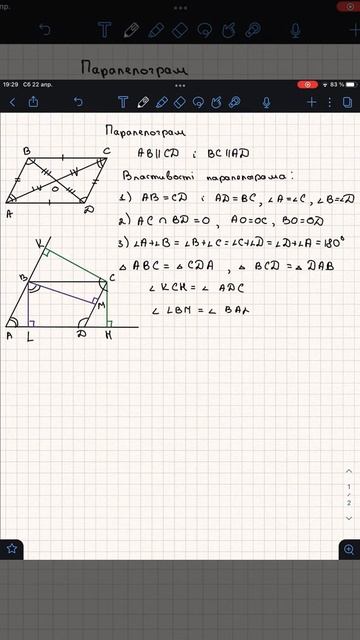 апр.
Паралелограм
19:29 Сб 22 апр.
83 %
Паралелограм
AB||CD і BC||AD
Властивості паралелограма:
1) AB=CD і AD=BC, ∠A=∠C, ∠B=∠D
2) AC ∩ BD=O, AO=OC, BO=OD
3) ∠A+∠B=∠B+∠C=∠C+∠D=∠D+∠A=180°
△ABC=△CDA, △BCD=△DAB
∠KCH=∠ADC
∠LBM=∠BA
B C
O
A D
K
B C
M
A L D H
1
2